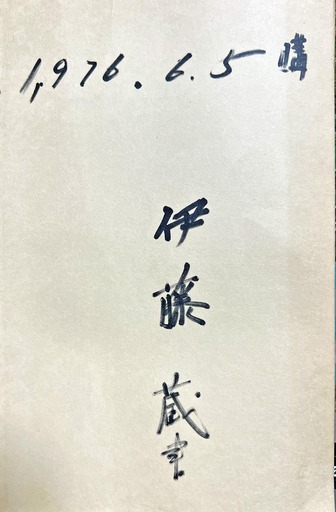 1,976.6.5 購
伊藤蔵書